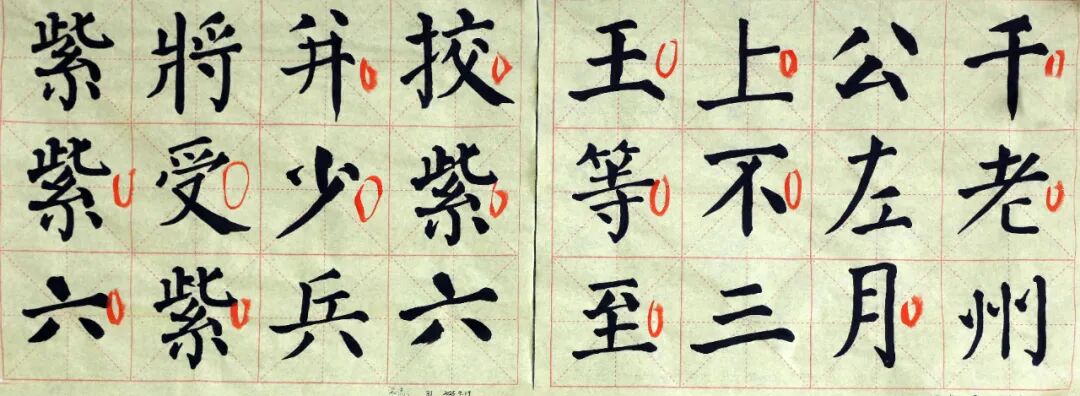 千老州
公左月
上不三
王等至
挍紫六
并少兵
將受紫
紫紫六